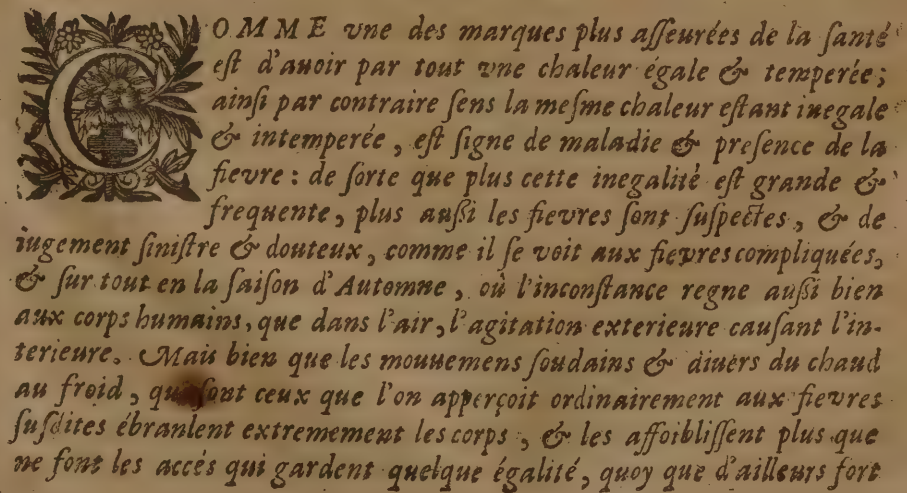 COMME vne des marques plus aſſeurées de la ſanté
eſt d'auoir par tout vne chaleur égale & temperée;
ainſi par contraire ſens la meſme chaleur eſtant inegale
& intemperée, eſt ſigne de maladie & preſence de la
fievre: de ſorte que plus cette inegalité eſt grande &
frequente, plus auſſi les fievres ſont ſuſpectes, & de
iugement ſiniſtre & douteux, comme il ſe voit aux fievres compliquées,
& ſur tout en la ſaiſon d'Automne, où l'inconſtance regne auſſi bien
aux corps humains, que dans l'air, l'agitation exterieure cauſant l'in-
terieure. Mais bien que les mouuemens ſoudains & diuers du chaud
au froid, qui ſont ceux que l'on apperçoit ordinairement aux fievres
ſuſdites ébranlent extremement les corps, & les affoibliſſent plus que
ne font les accés qui gardent quelque égalité, quoy que d'ailleurs fort